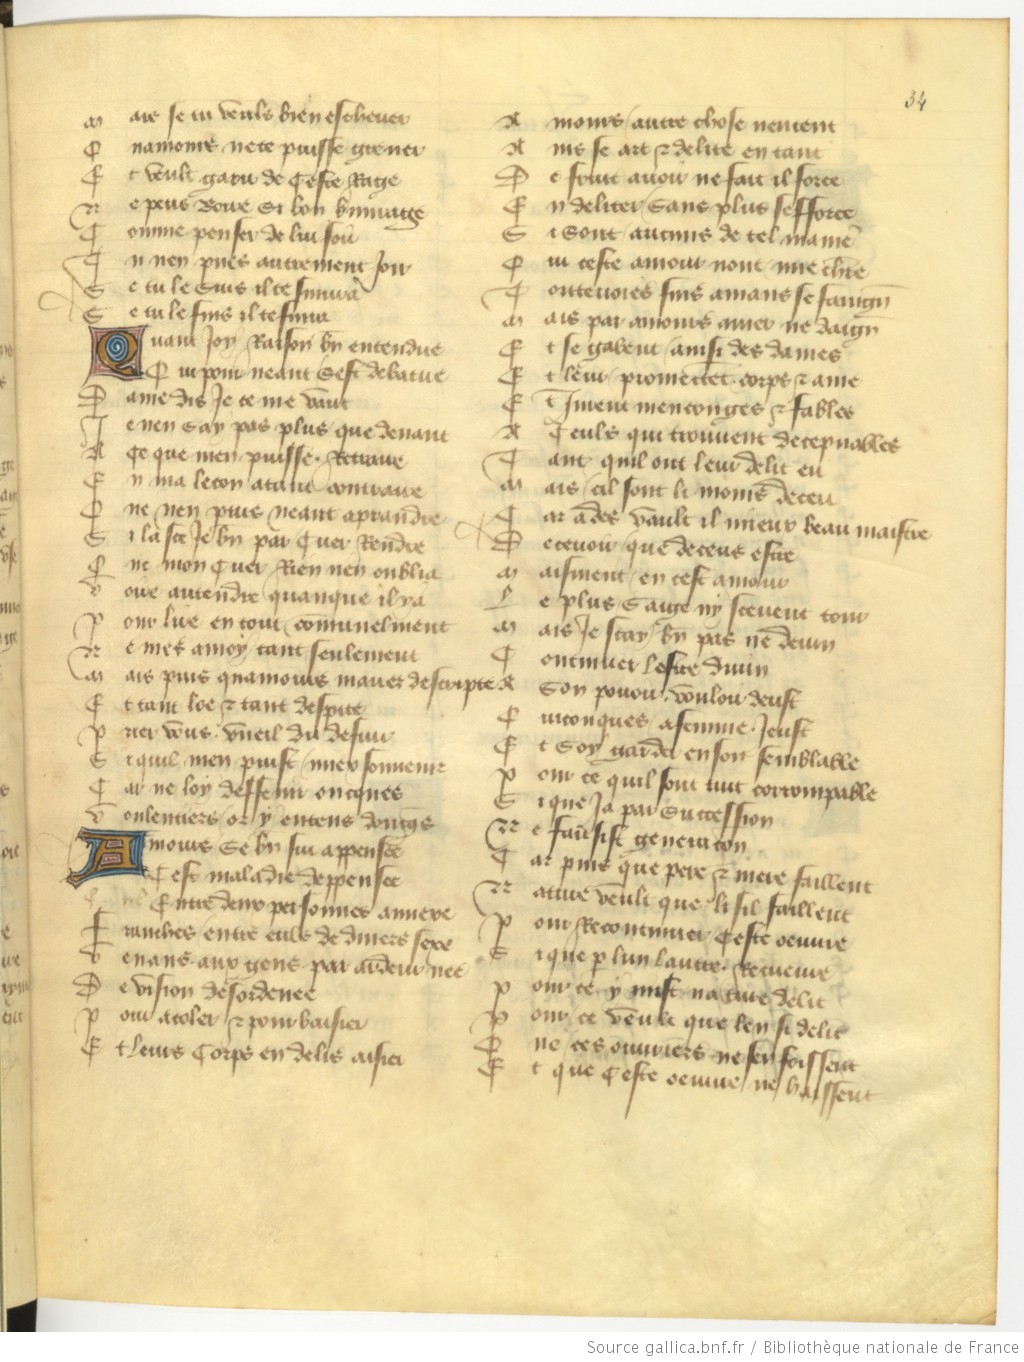 34
Mais se tu veuls bien eschever
Quamours ne te puisse grever
Et veult garir de ceste Rage
Ne peus boire si bon buvraige
Comme penser de lui fouir
Tu nen pues autrement joir
Se tu le suis il te suivra
Se tu le fuis il te fuira
Quant joy Raison bien entendue
Qui pour neant sest debatue
Dame dis je ce me vant
Je nen say pas plus que devant
A ce que men puisse Retraire
En ma lecon a tant contraire
Que nen puis neant aprandre
Si la scé je bien par cuer Rendre
Quc mon cuer Rien nen oublia
Voire entendre quanque il y a
Pour lire en tout comunelment
Ne mes a moy tant seulement
Mais puis quamours mavez descripte
Et tant loe et tant despite
Prier vous vueil du defenir
Si quil men puist mieux souvenir
Car ne loy deffenir oncques
Voulentiers or y entens doncques
Amours se bien sui appensee
Cest maladie de pensee
Entre deux personnes annexe
Franches entre euls de divers sexe
Venans aux gens par ardeur nee
De vision desordenee
Pour acoler et pour baisier
Et leurs corps en delis aisier
Amours autre chose nentent
Ains se art et delite en tant
De fruit avoir ne fait il force
En deliter sans plus sefforce
Si sont aucuns de tel maniere
Qui ceste amour nont mie chiere
Toutevoies fins amans se faingnent
Mais par amours amer ne daingnent
Et se gabent ainsi des dames
Et leur promettent corps et ame
Et jurent menconges et fables
A ceuls qui trouvent decepvables
Tant quil ont leur delit eu
Mais cil sont li moins deceu
Car ades vault il mieux beau maistre
Decevoir que deceus estre
Maisment en cest amour
Le plus saige ny scevent tour
Mais je scay bien pas ne devin
Continuer lestre divin
A son pouoir vouloir deust
Quiconques a femme jeust
Et soy garder en son semblable
Pour ce quil sont tuit corrompable
Si que ja par succession
Ne fausist generacion
Car puis que pere et mere faillent
Nature veult que li fil saillent
Pour Recontinuer ceste oeuvre
Si que par lun lautre Recueuvre
Pour ce y mist nature delit
Pour ce veult que len si delit
Que ces ouvriers ne sen foissent
Et que ceste oeuvre ne haissent
Source gallica.bnf.fr / Bibliothèque nationale de France